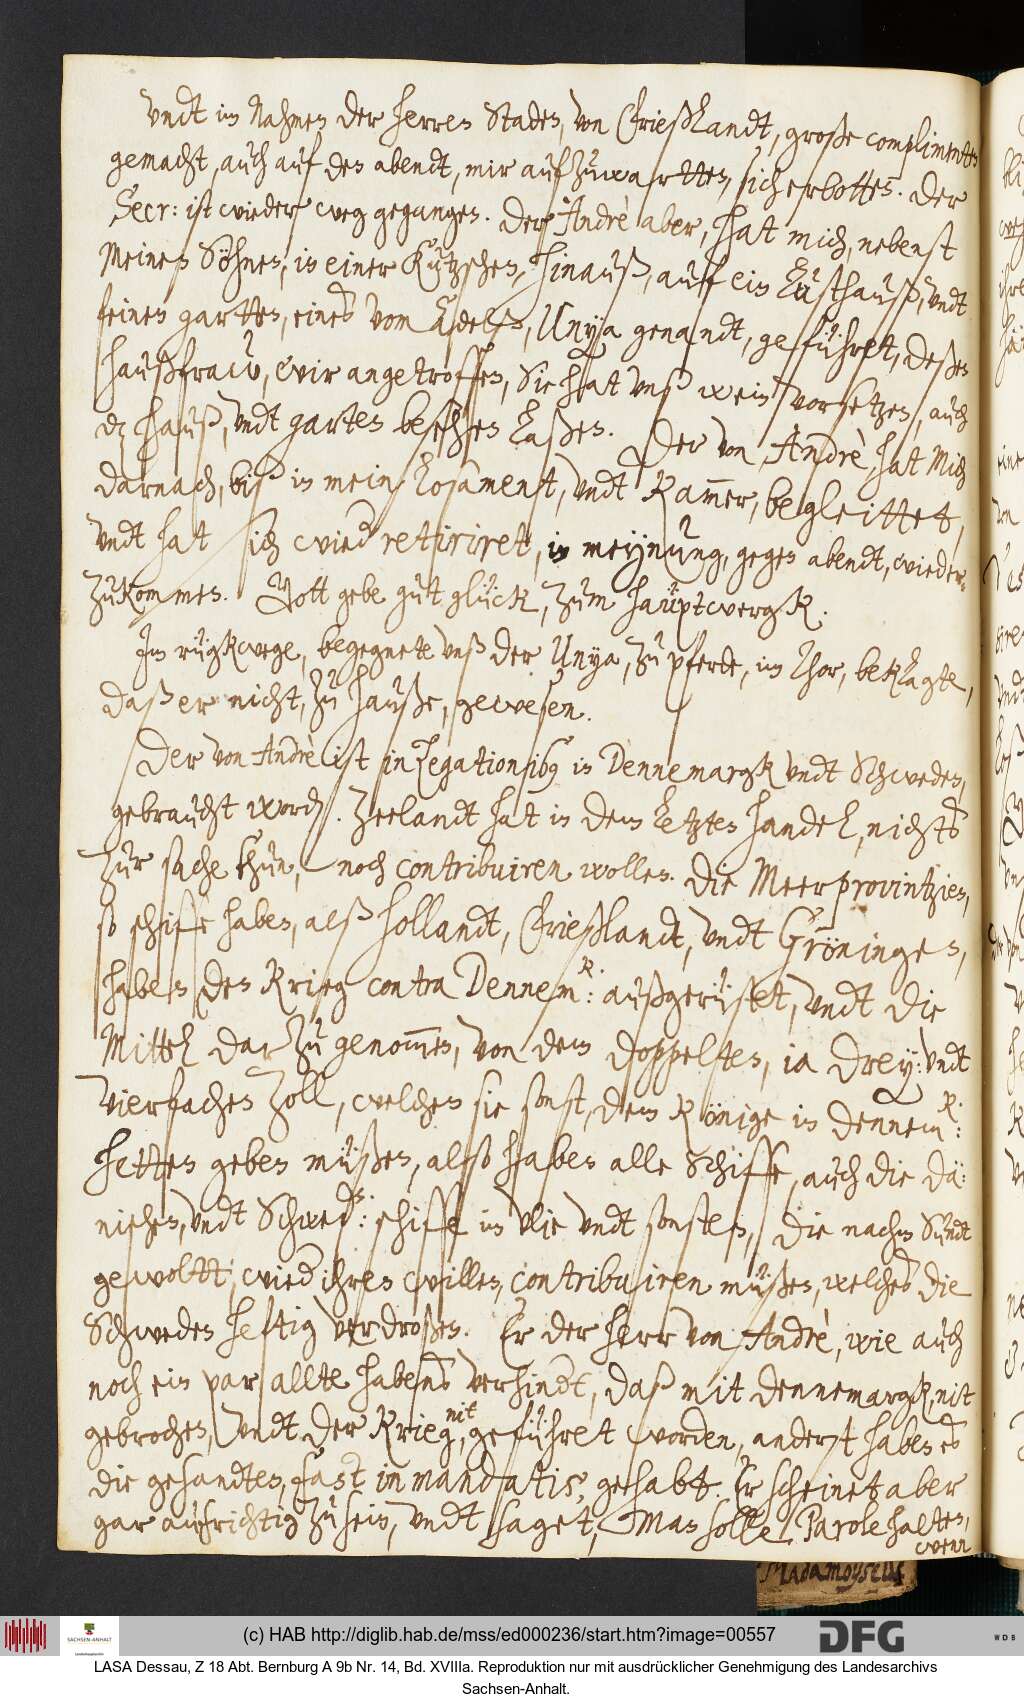 undt im Nahmen der herren Staden, von Frießlandt, große complimenten
gemacht, auch auf den abendt, mir aufzuwartten, sich erbotten. Der
Secr: ist wieder weg gegangen. Der André aber, hat mich, nebenst
meinen Söhnen, in einer Kutzschen, hinauß, auf ein Lusthauß, undt
feinen gartten, eines vom Adelß, Unya genandt, geführet, deßen
haußfraw, wir angetroffen, Sie hat unß wein vorsetzen, auch
dz hauß, undt garten besehen laßen. Der von André, hat mich
darnach, biß in mein losament, undt Kam̅er, begleittet,
undt hat sich wied retiriret, in meynung, gegen abendt, wieder
zukommen. Gott gebe gut glück, zum hauptwergk.
Im rügkwege, begegnete unß der Unya, zu pferde, im Thor, beklagte,
daß er nicht, zu hause, gewesen.
Der von André ist in Legationib9 in Dennemargk undt Schweden,
gebraucht word. Zeelandt hat in dem letzten handel, nichts
zur sache thun, noch contribuiren wollen. Die Meerprovintzien,
so schiffe haben, alß hollandt, Frießlandt, undt Gröningen,
haben den Krieg contra Dennemk: außgerüstet, undt die
Mittel darzu genom̅en, von dem doppelten, ia drey: undt
vierfachen Zoll, welchen sie sonst, dem Könige in Dennemk:
hetten geben müßen, also haben alle Schiffe, auch die dä:
nischen, undt Schweds: schiffe im Vlie undt sonsten, die nachm Sundt
gewoltt, wied ihren willen, contribuiren müßen, welches die
Schweden heftig verdroßen. Er der herr von André, wie auch
noch ein par allte habens verhindt, daß mit Dennemargk, nit
gebrochen, undt der Krieg, nit geführet worden, anderst haben es
die gesandten, fast in mandatis, gehabt. Er scheinet aber
gar aufrichtig zu sein, undt saget, Man solle Parole halten,
wenn
Madamoyselle
(c) HAB http://diglib.hab.de/mss/ed000236/start.htm?image=00557
SACHSEN-ANHALT
DFG
WDB
LASA Dessau, Z 18 Abt. Bernburg A 9b Nr. 14, Bd. XVIIIa. Reproduktion nur mit ausdrücklicher Genehmigung des Landesarchivs
Sachsen-Anhalt.